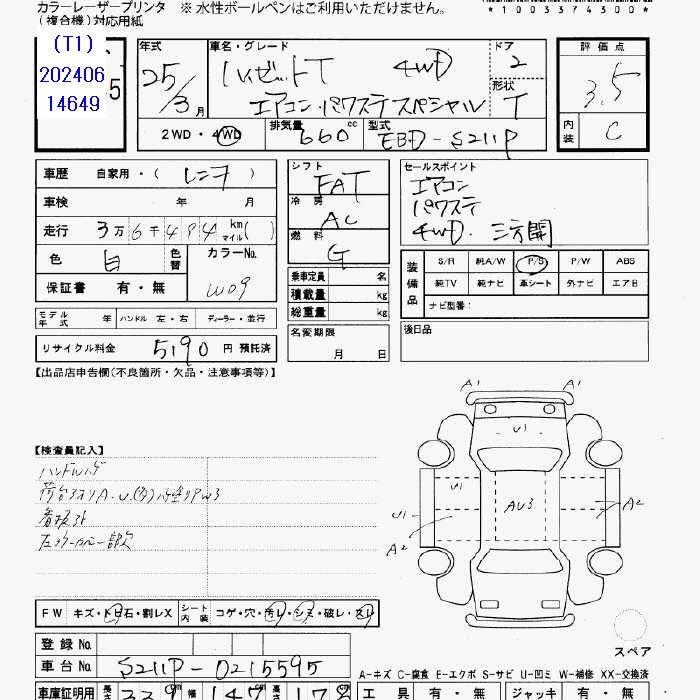 カラーレーザープリンタ ※ 水性ボールペンはご利用いただけません。
(複合機)対応用紙
*1003374300*
(T1)
202406
14649
5
年式 車名・グレード ドア 評価点
25/3月 ハイゼットT 4WD 2 3.5
形状
エアコン・パワステスペシャル T
内装 C
2WD・4WD 排気量 660 cc 型式 EBD-S211P
車歴 自家用・( レンテ )
車検 年 月
走行 3万6千494 km マイル( )
色 白 色替 カラーNo. W09
保証書 有・無
シフト FAT
冷房 AC
燃料 G
乗車定員 名
積載量 kg
総重量 kg
名変期限
月 日
セールスポイント
エアコン
パワステ
4WD. 三方開
装備品 S/R 純A/W P/S P/W ABS
純TV 純ナビ 革シート 外ナビ エアB
ナビ型番:
後日品
モデル年式 年 ハンドル 左・右 ディーラー・並行
リサイクル料金 5190 円 預託済
【出品店申告欄(不良箇所・欠品・注意事項等)】
【検査員記入】
ハンドルハゲ
荷台アオリA.U.
看板外
A1 A1
U1
U1 AU3 A2
U1
A2
スペア
FW キズ・トビ石・割レX シート内装 コゲ・穴・汚レ・シミ・破レ・スレ
登録No.
車台No. S211P-0215595
A-キズ C-腐食 E-エクボ S-サビ U-凹ミ W-補修 XX-交換済
車庫証明用 長さ 339 幅 147 高さ 178 工具 有・無 ジャッキ 有・無